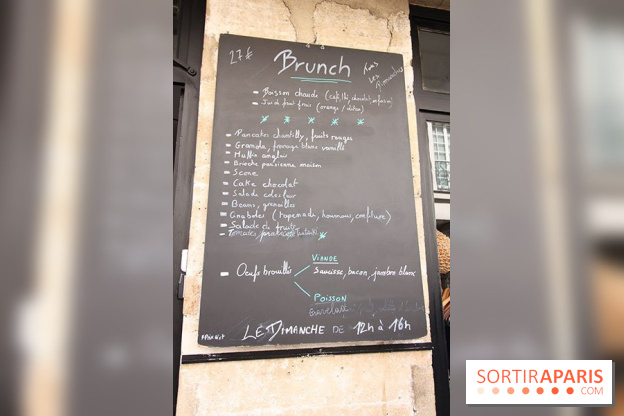 27€
Brunch
Tous
Les
Dimanches
- Boisson chaude (café, thé, chocolat, infusion)
- Jus de fruit frais (orange / citron)
- Pancakes chantilly, fruits rouges
- Granola, fromage blanc vanille
- Muffin anglais
- Brioche parisienne maison
- Scone
- Cake chocolat
- Salade coleslaw
- Beans, grenailles
- (tapenade, houmous, confiture)
- Salade de fruits
- Tomates
- Oeufs brouillés
VIANDE
Saucisse, bacon, jambon blanc
POISSON
LE DIMANCHE DE 12h à 16h
SORTIRAPARIS
.COM